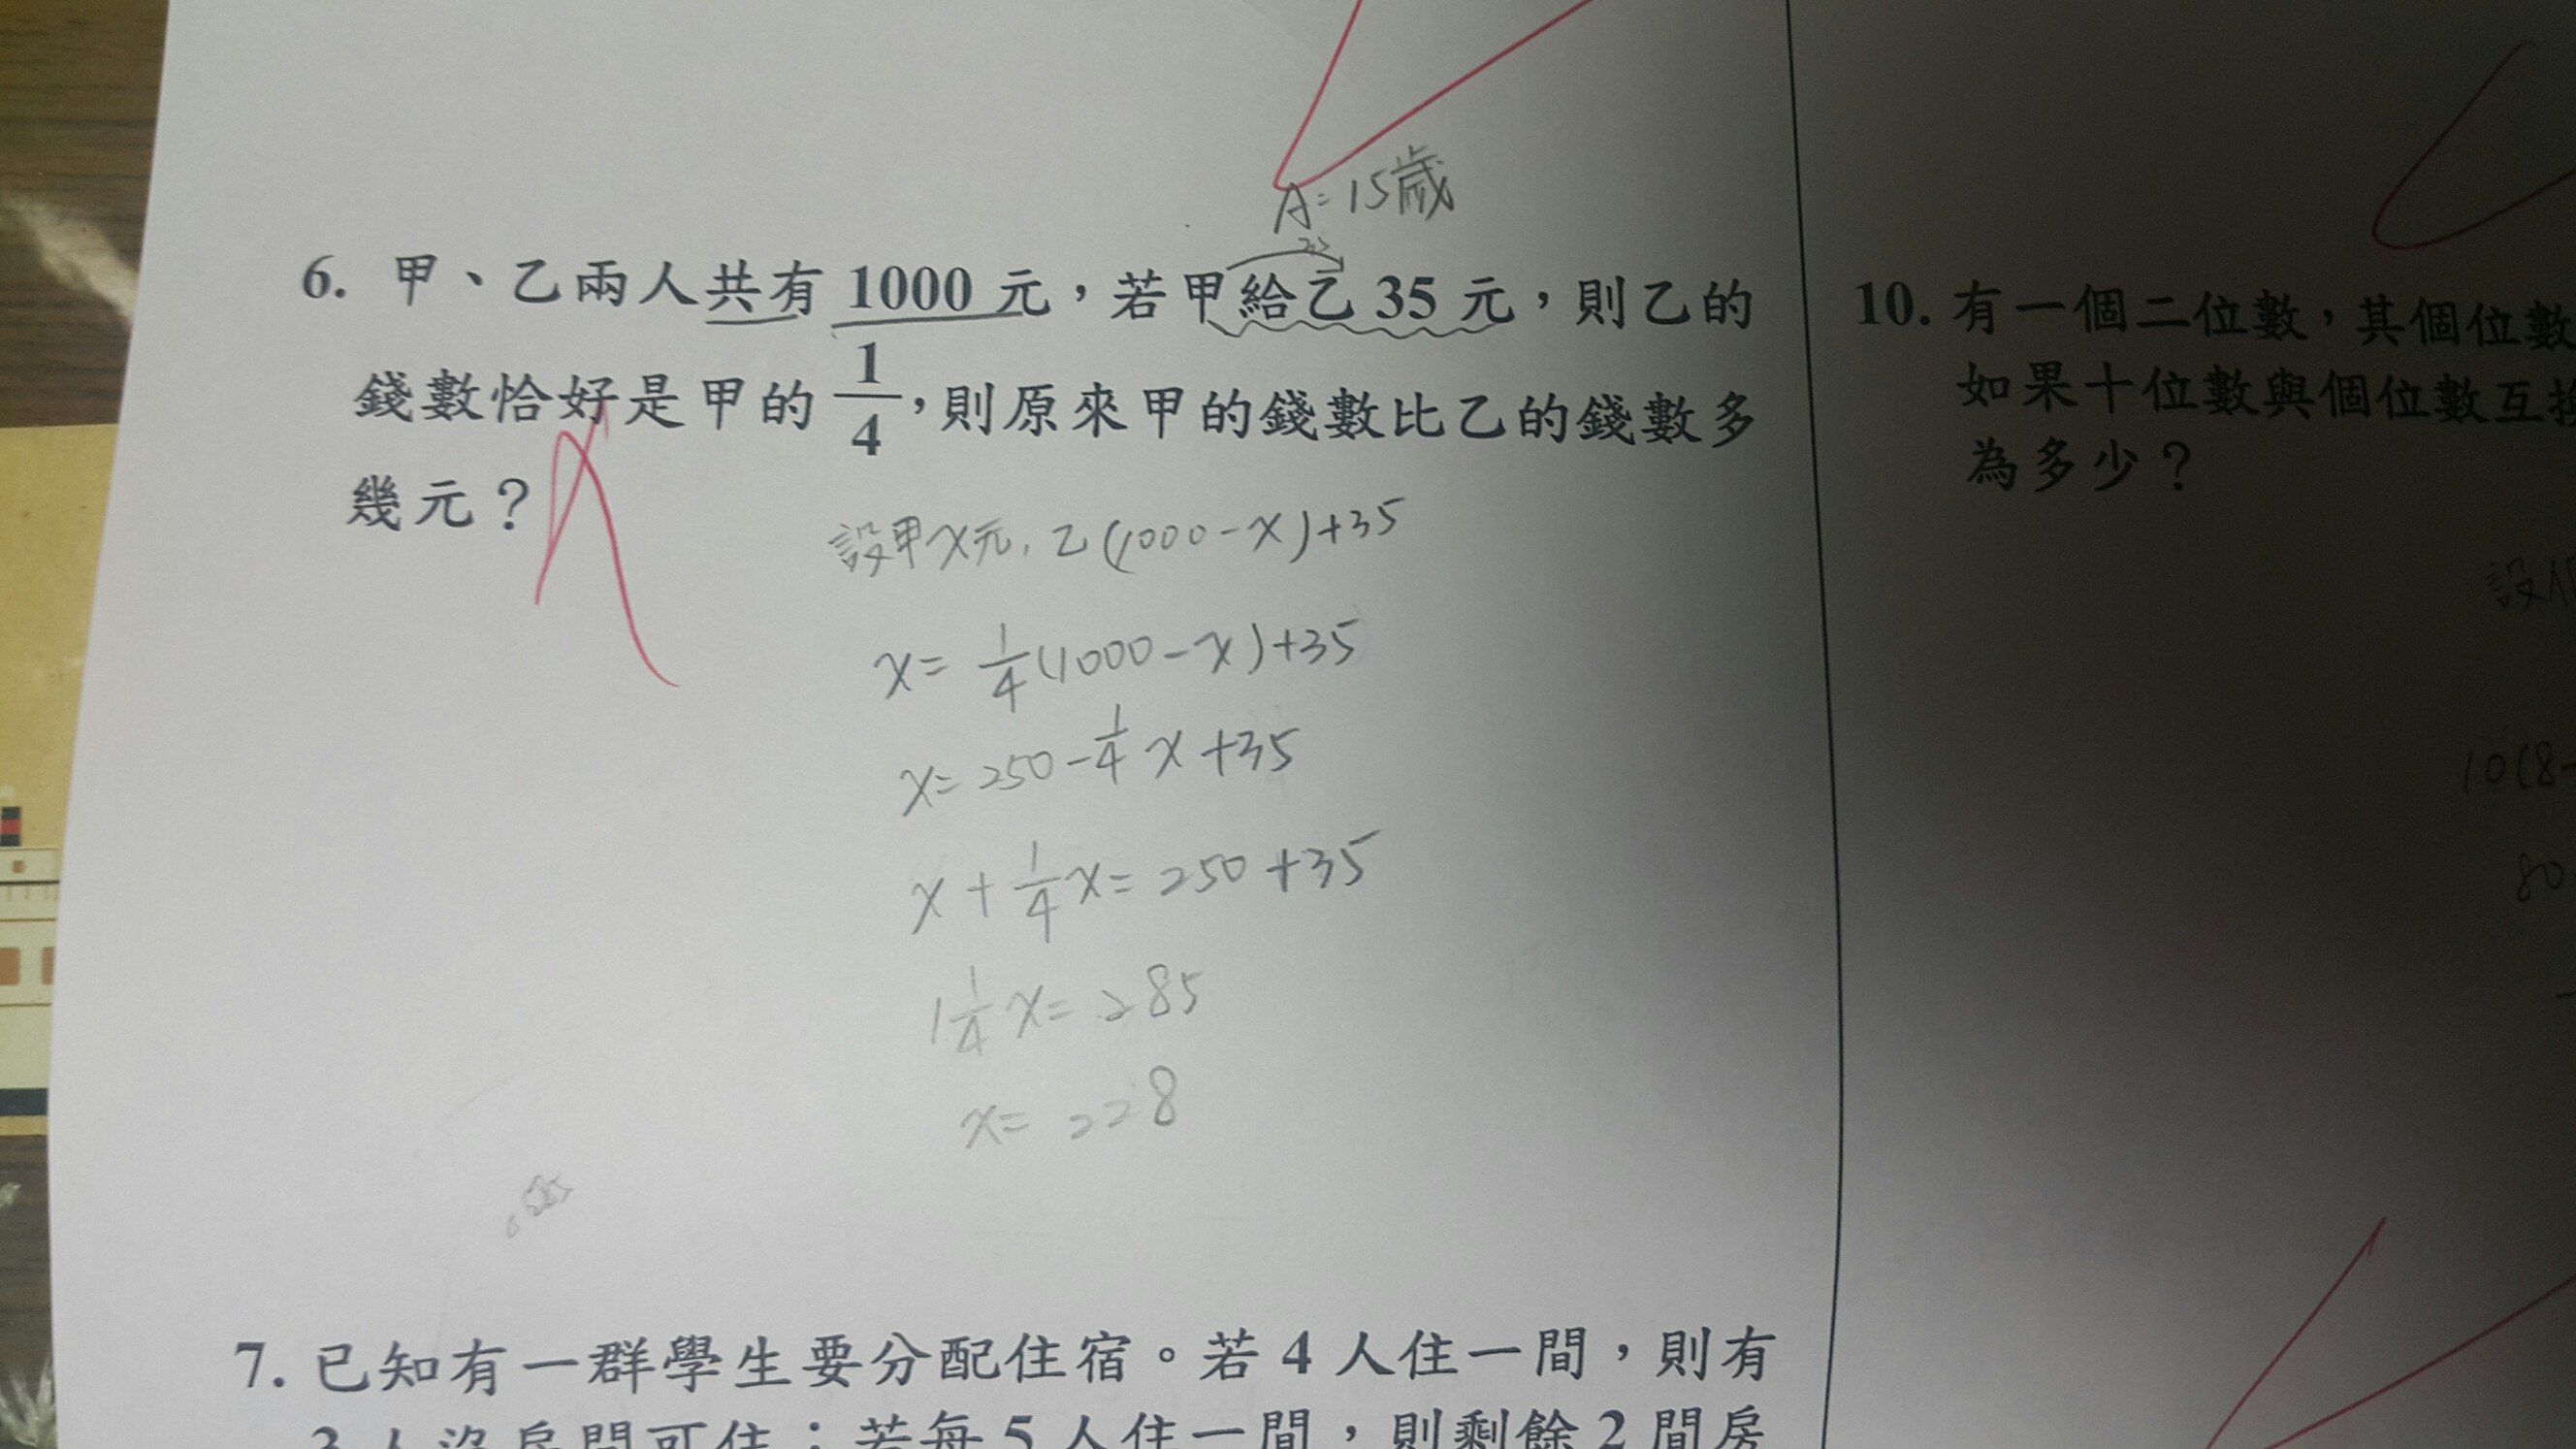 A=15歲
6. 甲、乙兩人共有 1000 元，若甲給乙 35 元，則乙的
錢數恰好是甲的 1/4，則原來甲的錢數比乙的錢數多
幾元？
設甲x元，乙(1000-x)+35
x= 1/4(1000-x)+35
x=250-1/4x+35
x+1/4x=250+35
1 1/4x=285
x=228
7. 已知有一群學生要分配住宿。若 4 人住一間，則有
3 人沒房間可住；若每 5 人住一間，則剩餘 2 間房
10. 有一個二位數，其個位數
如果十位數與個位數互換
為多少？
設
10(8-
80